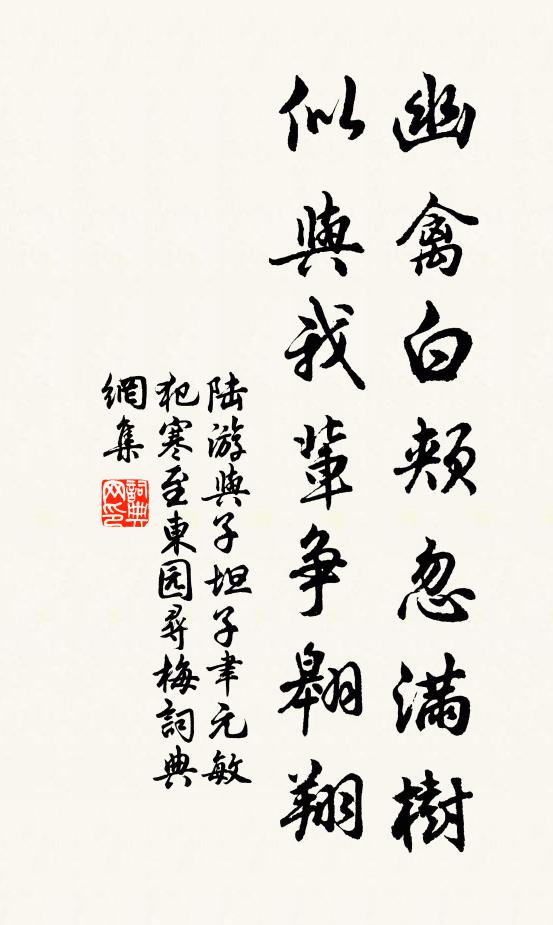 幽禽白頰忽滿樹
似與我輩争翺翔
陸游與子坦子聿元敏
犯寒至東园尋梅詞典
網集
詞典
网印